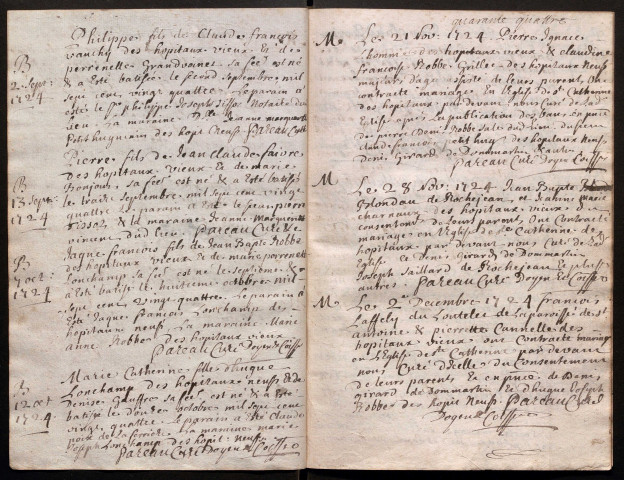 Philippe fils de Claude françois
vanthy des hopitaux vieux Et de
perrenette Grandvoines sa fe est né
& a Eté batisé le second septembre mil
sept cens vingt quattre. Le parain a
esté le Sr philippe Joseph Notaire du
lieu. La maraine Dlle Jeanne marguerite
Petit huguenin des hopit Neufs Pareau Curé
B
2 Sept:
1724
Pierre fils de Jean Claude faivre
des hopitaux vieux Et de marie
Bonjour sa fe est né & a Eté batisé
le traize septembre, mil sept cens vingt
quattre Le parain a Eté le Sr jean pierre
Tissot & la maraine Jeanne Marguerite
vincent du Lieu Pareau Curé
B
13 Sept:
1724
Jaque françois fils de Jean Bapte Robbe
des hopitaux vieux Et de marie perrenette
Lonchamp sa fe est né le septieme &
a Eté batisé le huitieme octobre mil
sept cens vingt quattre. Le parain a
Eté Jaque François Lonchamp des
hopitaux neufs La maraine Marie
anne Robbe des hopitaux vieux
Pareau Curé Doyen de
B
7 oct:
1724
Marie Catherine fille d'hugue
Lonchamp des hopitaux neufs & de
Denise Gauffre sa fe est né & a Eté
batisé le douze octobre mil sept cens
vingt quattre. Le parain a Eté Claude
La maraine marie
Joseph Lonchamp des hopit: neufs
Pareau Curé Doyen de
B
12 oct
1724
quarante quattre
M Le 21 Nov: 1724. Pierre Ignace
des hopitaux vieux & claudine
francoise Robbe Grille des hopitaux Neufs
de leurs parents, On
contracté mariage En l'Eglise de Ste Catherine
des hopitaux par devant nous Curé de lad
Eglise apres la publication des bans en pnce
de pierre Denis Robbe dudit Lieu du Sieur
Claude francois petit hug des hopitaux Neufs
Denis Girard de Dommartin & autres
Pareau Curé Doyen
M Le 28 Nov: 1724 Jean Bapte
Blondeau de Rochejean et Jeanne marie
charnaux des hopitaux vieux du
consentement de leurs parens, Ont Contracté
mariage en l'Eglise de Ste Catherine des
hopitaux par devant nous Curé de lad
Eglise En Denis girard de Dommartin
Joseph Saillard de Rochejean & plusieurs
autres. Pareau Curé Doyen
M Le 2e Decembre 1724 françois
Laffely du Lontelet de La paroisse de st
antoine & pierrette Cannelle des
hopitaux vieux ont Contracté mariage
en L'Eglise de Ste Catherine par devant
nous Curé Dicelle du Consentement
de leurs parens. En pnce de Denis
girard de Dommartin & d'hugue Joseph
Robbe des hopit Neufs. Pareau Curé
Doyen